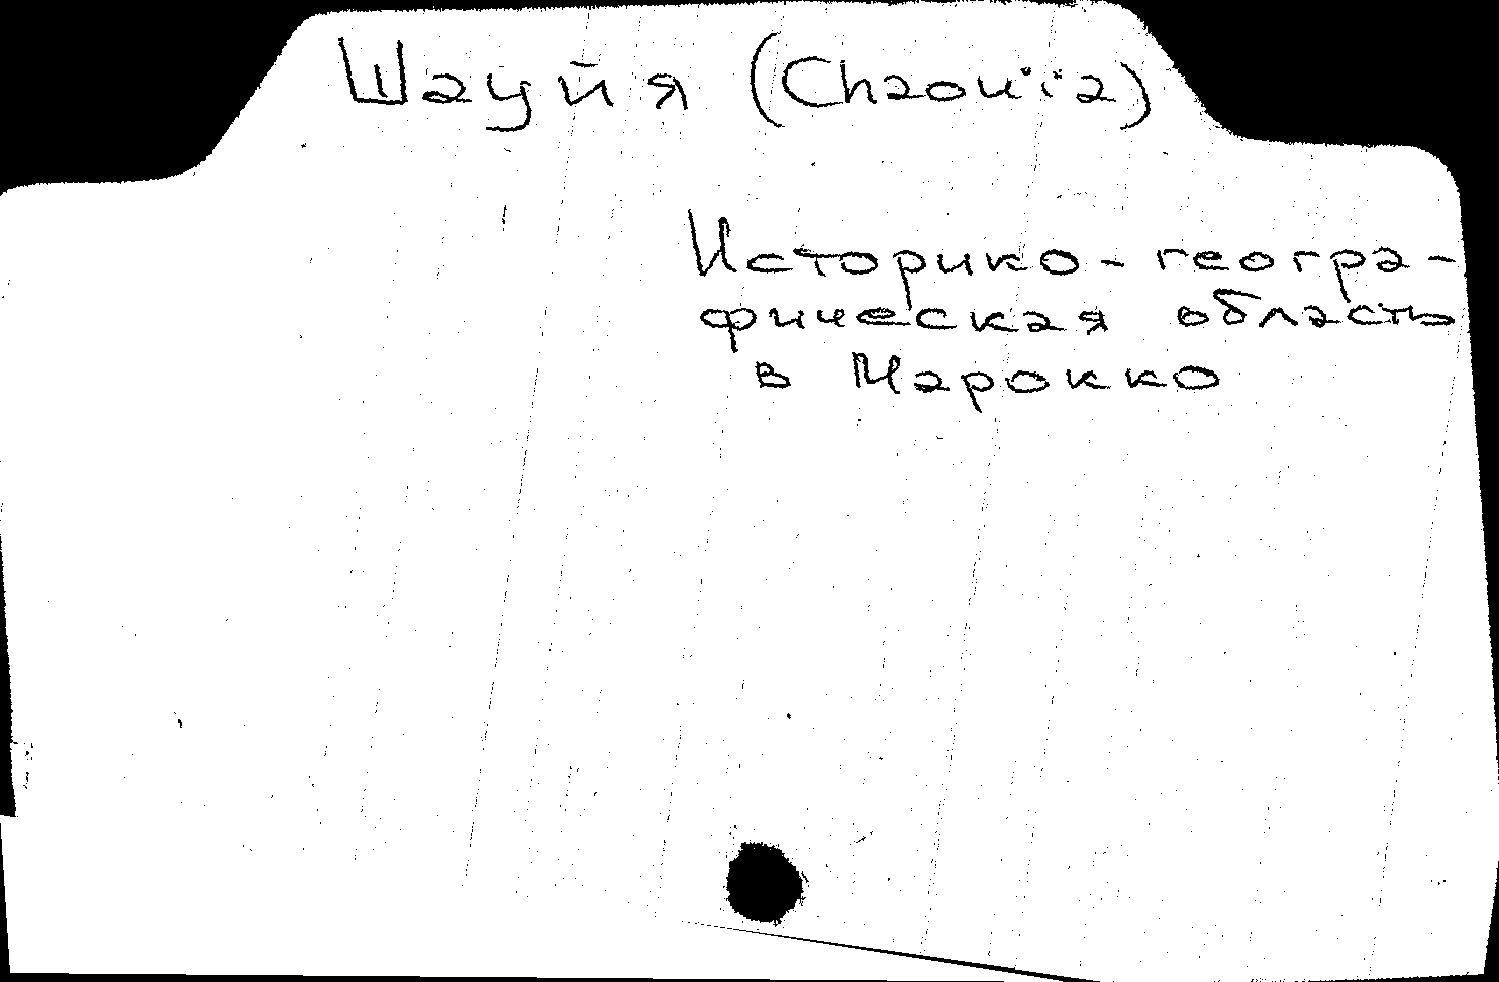 Шауйя (Chaouïa)
Историко-геогра-
фическая область
в Марокко